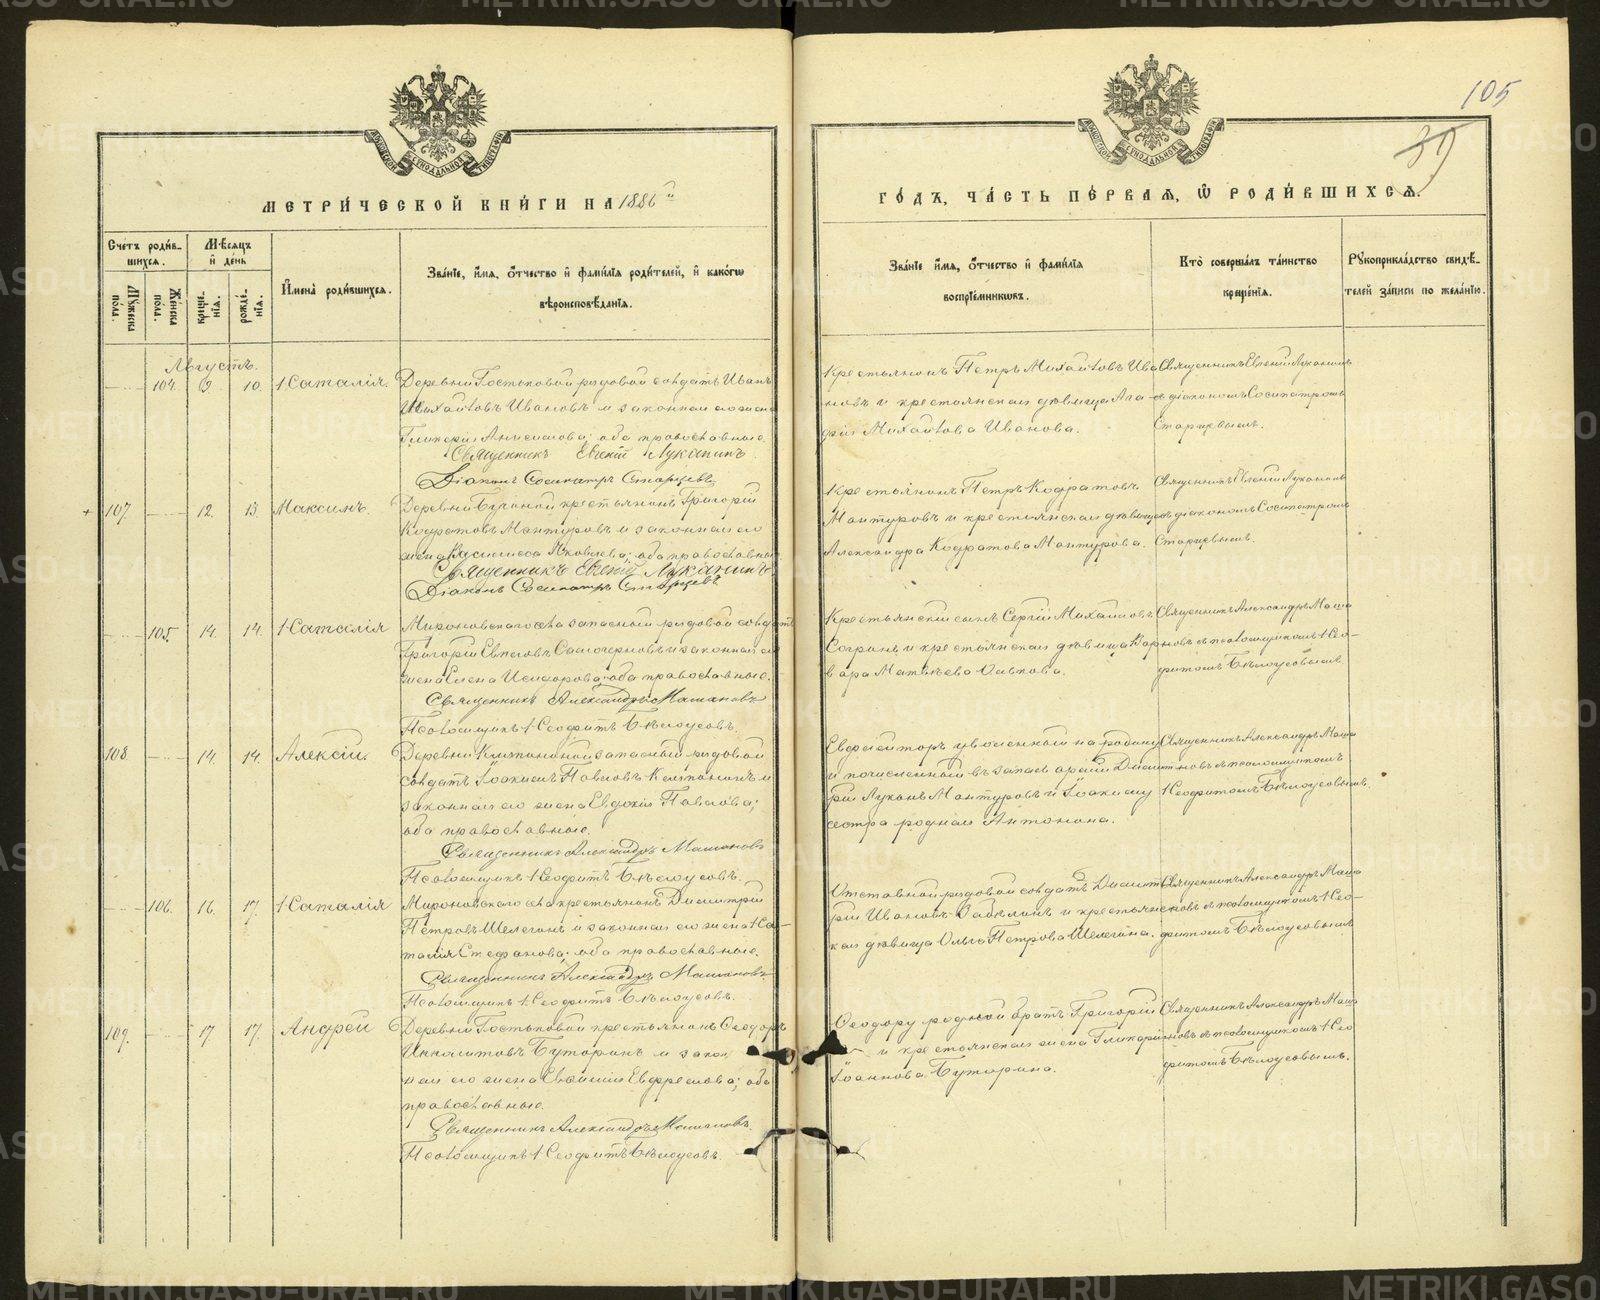 105
39
МЕТРИ́ЧЕСКОЙ КНИ́ГИ НА 1886й
ГО́ДЪ, ЧА́СТЬ ПЕ́РВАѦ, Ѿ РОДИ́ВШИХСѦ.
Счетъ роди́вшихсѧ.
Мꙋжеска пола.
Женска пола.
Мѣсѧцъ и де́нь
креще́нїѧ.
рожде́нїѧ.
Имена̀ роди́вшихсѧ.
Зва́нїе, и́мѧ, о́тчество и фами́лїѧ роди́телей, и како́гѡ
вѣроисповѣ́данїѧ.
Зва́нїе и́мѧ, о́тчество и фами́лїѧ
воспрїе́мникѡвъ.
Кто̀ соверша́лъ та́инство
креще́нїѧ.
Рꙋкоприкла́дство свидѣ́-
телей за́писи по жела́нїю.
Августъ.
104. 10. Наталія.
Деревни Гостьковой рядовой солдатъ Иванъ
Михайловъ Ивановъ и законная его жена
Гликерія Анисимова; оба православные.
Священникъ Евгеній Луканинъ
Діаконъ Сосипатръ Старцевъ
Крестьянинъ Петръ Михайловъ Ива-
новъ и крестьянская дѣвица Ага-
фія Михайлова Иванова.
Священникъ Евгеній Луканинъ
съ діакономъ Сосипатромъ
Старцевымъ.
107 12. 13. Максимъ.
Деревни крестьянинъ Григорій
Кодратовъ Мантуровъ и законная его
жена Яковлева; оба православные
Священникъ Евгеній Луканинъ
Діаконъ Сосипатръ Старцевъ
Крестьянинъ Петръ Кодратовъ
Мантуровъ и крестьянская дѣвица
Александра Кодратова Мантурова.
Священникъ Евгеній Луканинъ
съ діакономъ Сосипатромъ
Старцевымъ.
105. 14. 14. Наталія
Мироновскаго села запасный рядовой солдатъ
Григорій Самочерновъ и законная его
жена Елена Исидорова; оба православные.
Священникъ Александръ Машановъ
Псаломщикъ Неофитъ Бѣлоусовъ.
Крестьянскій сынъ Сергій Михайловъ
и крестьянская дѣвица Вар-
вара Матвѣева
Священникъ Александръ Маша-
новъ съ псаломщикомъ Нео-
фитомъ Бѣлоусовымъ
108. 14. 14. Алексій.
Деревни запасный рядовой
солдатъ Іоакимъ Павловъ и
законная его жена Евдокія Павлова;
оба православные.
Священникъ Александръ Машановъ
Псаломщикъ Неофитъ Бѣлоусовъ.
Ефрейторъ уволенный на родину
и въ запасъ арміи Дими-
трій Мантуровъ и Іоакиму
сестра родная Антонина.
Священникъ Александръ Маша-
новъ съ псаломщикомъ
Неофитомъ Бѣлоусовымъ.
106. 16. 17. Наталія
Мироновскаго села крестьянинъ Димитрій
Петровъ Шелегинъ и законная его жена На-
талія Стефанова; оба православные.
Священникъ Александръ Машановъ
Псаломщикъ Неофитъ Бѣлоусовъ.
Отставной рядовой солдатъ Димит-
рій Ивановъ и крестьянс-
кая дѣвица Ольга Петрова Шелегина.
Священникъ Александръ Маша-
новъ съ псаломщикомъ Нео-
фитомъ Бѣлоусовымъ
109. 17 17. Андрей
Деревни Гостьковой крестьянинъ Ѳеодоръ
Ипполитовъ Буторинъ и закон
ная его жена Евфимія Ефремова; оба
православные.
Священникъ Александръ Машановъ
Псаломщикъ Неофитъ Бѣлоусовъ.
Ѳеодору родной братъ Григорій
и крестьянская жена Гликерія
Іоаннова Буторина.
Священникъ Александръ Маша-
новъ съ псаломщикомъ Нео-
фитомъ Бѣлоусовымъ.
METRIKI.GASO-URAL.RU